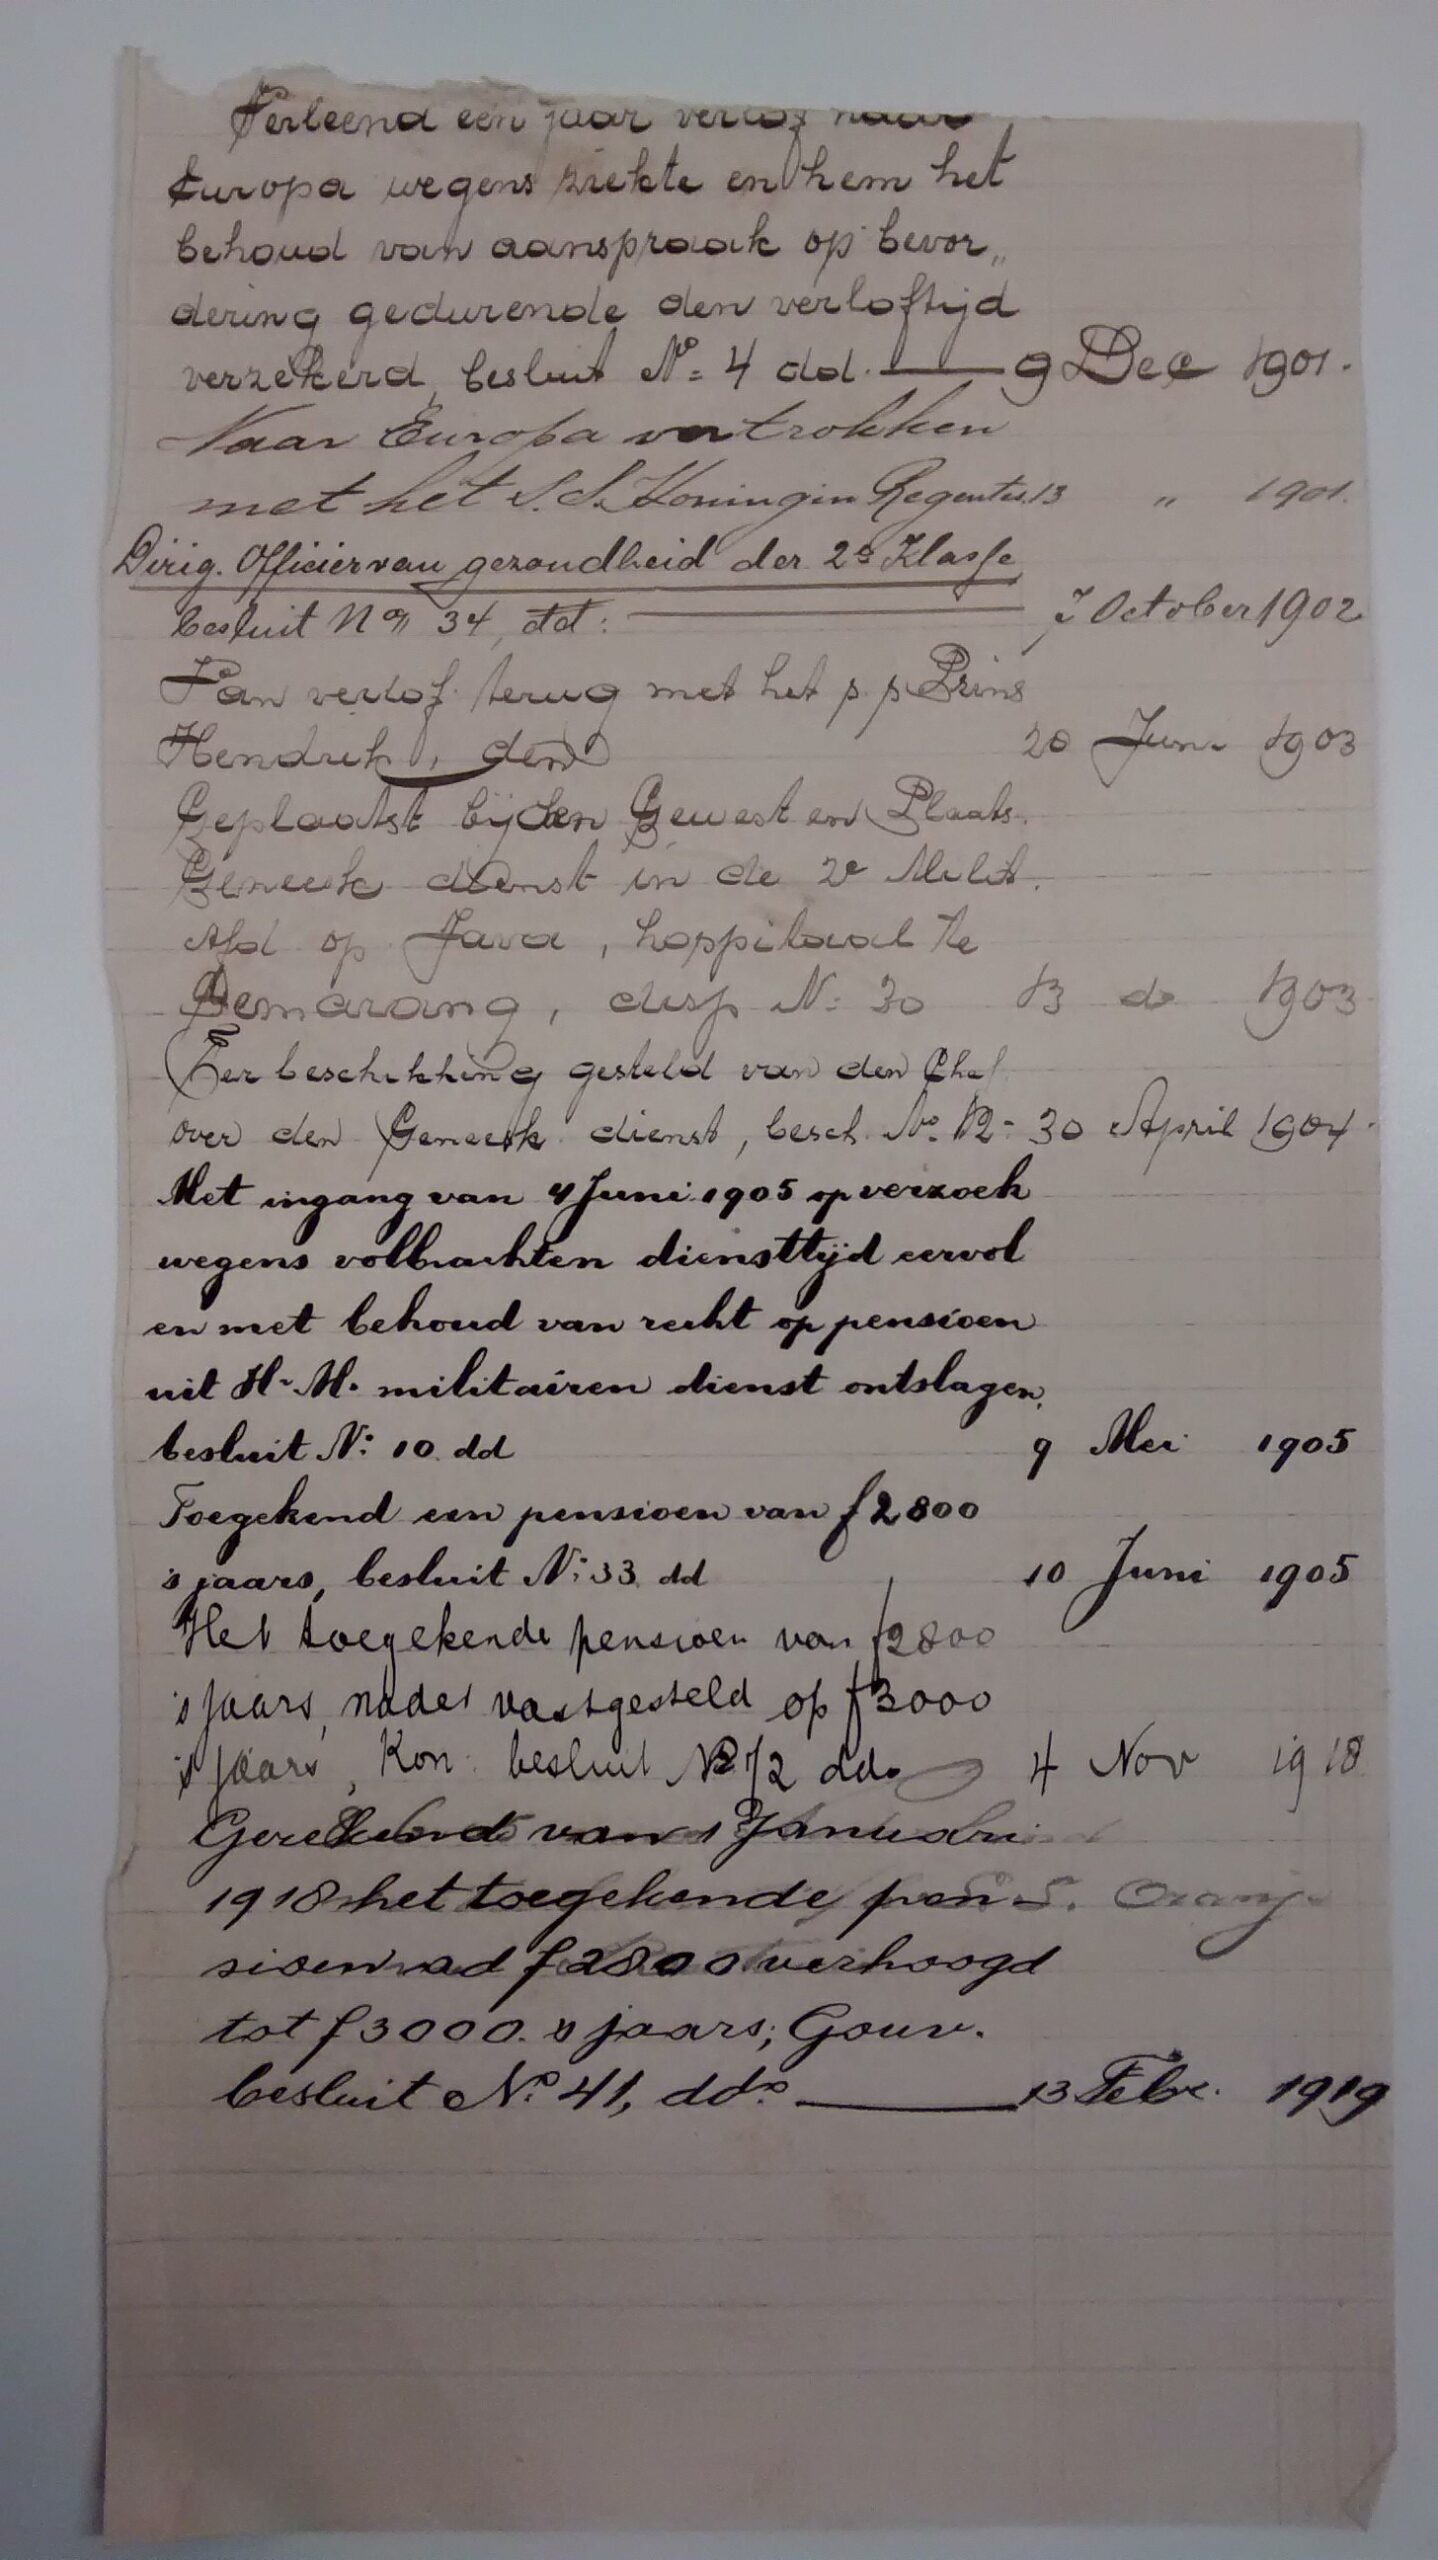 Verleend een jaar verlof naar
Europa wegens ziekte en hem het
behoud van aanspraak op bevor„
dering gedurende den verloftijd
verzekerd, besluit No= 4 dd. 9 Dec 1901.
Naar Europa vertrokken
met het S.S. Koningin Regentes 13 „ 1901.
Dirig. Officier van gezondheid der 2e Klasse
besluit No 34, dd: 7 October 1902
Van verlof terug met het p. p Prins
Hendrik, den 20 Juni 1903
Geplaatst bij den Gewest en Plaats.
Geneesk dienst in de 2e Milit.
Afd op Java, hospitaal te
Semarang, disp No: 30 13 do 1903
Ter beschikking gesteld van den Chef
over den Geneesk dienst, besch. No. 12= 30 April 1904.
Met ingang van 4 Juni 1905 op verzoek
wegens volbrachten diensttijd eervol
en met behoud van recht op pensioen
uit H. M. militairen dienst ontslagen,
besluit No: 10 dd 9 Mei 1905
Toegekend een pensioen van f 2800
's jaars, besluit No: 33 dd 10 Juni 1905
Het toegekende pensioen van f2800
's jaars, nader vastgesteld op f 3000
's jaars, Kon. besluit No 72 ddo 4 Nov 1918
Gerekend van 1 Januari
1918 het toegekende pen
sioen ad f 2800 verhoogd
tot f 3000. 's jaars; Gouv.
besluit No. 41, ddo. 13 Febr. 1919